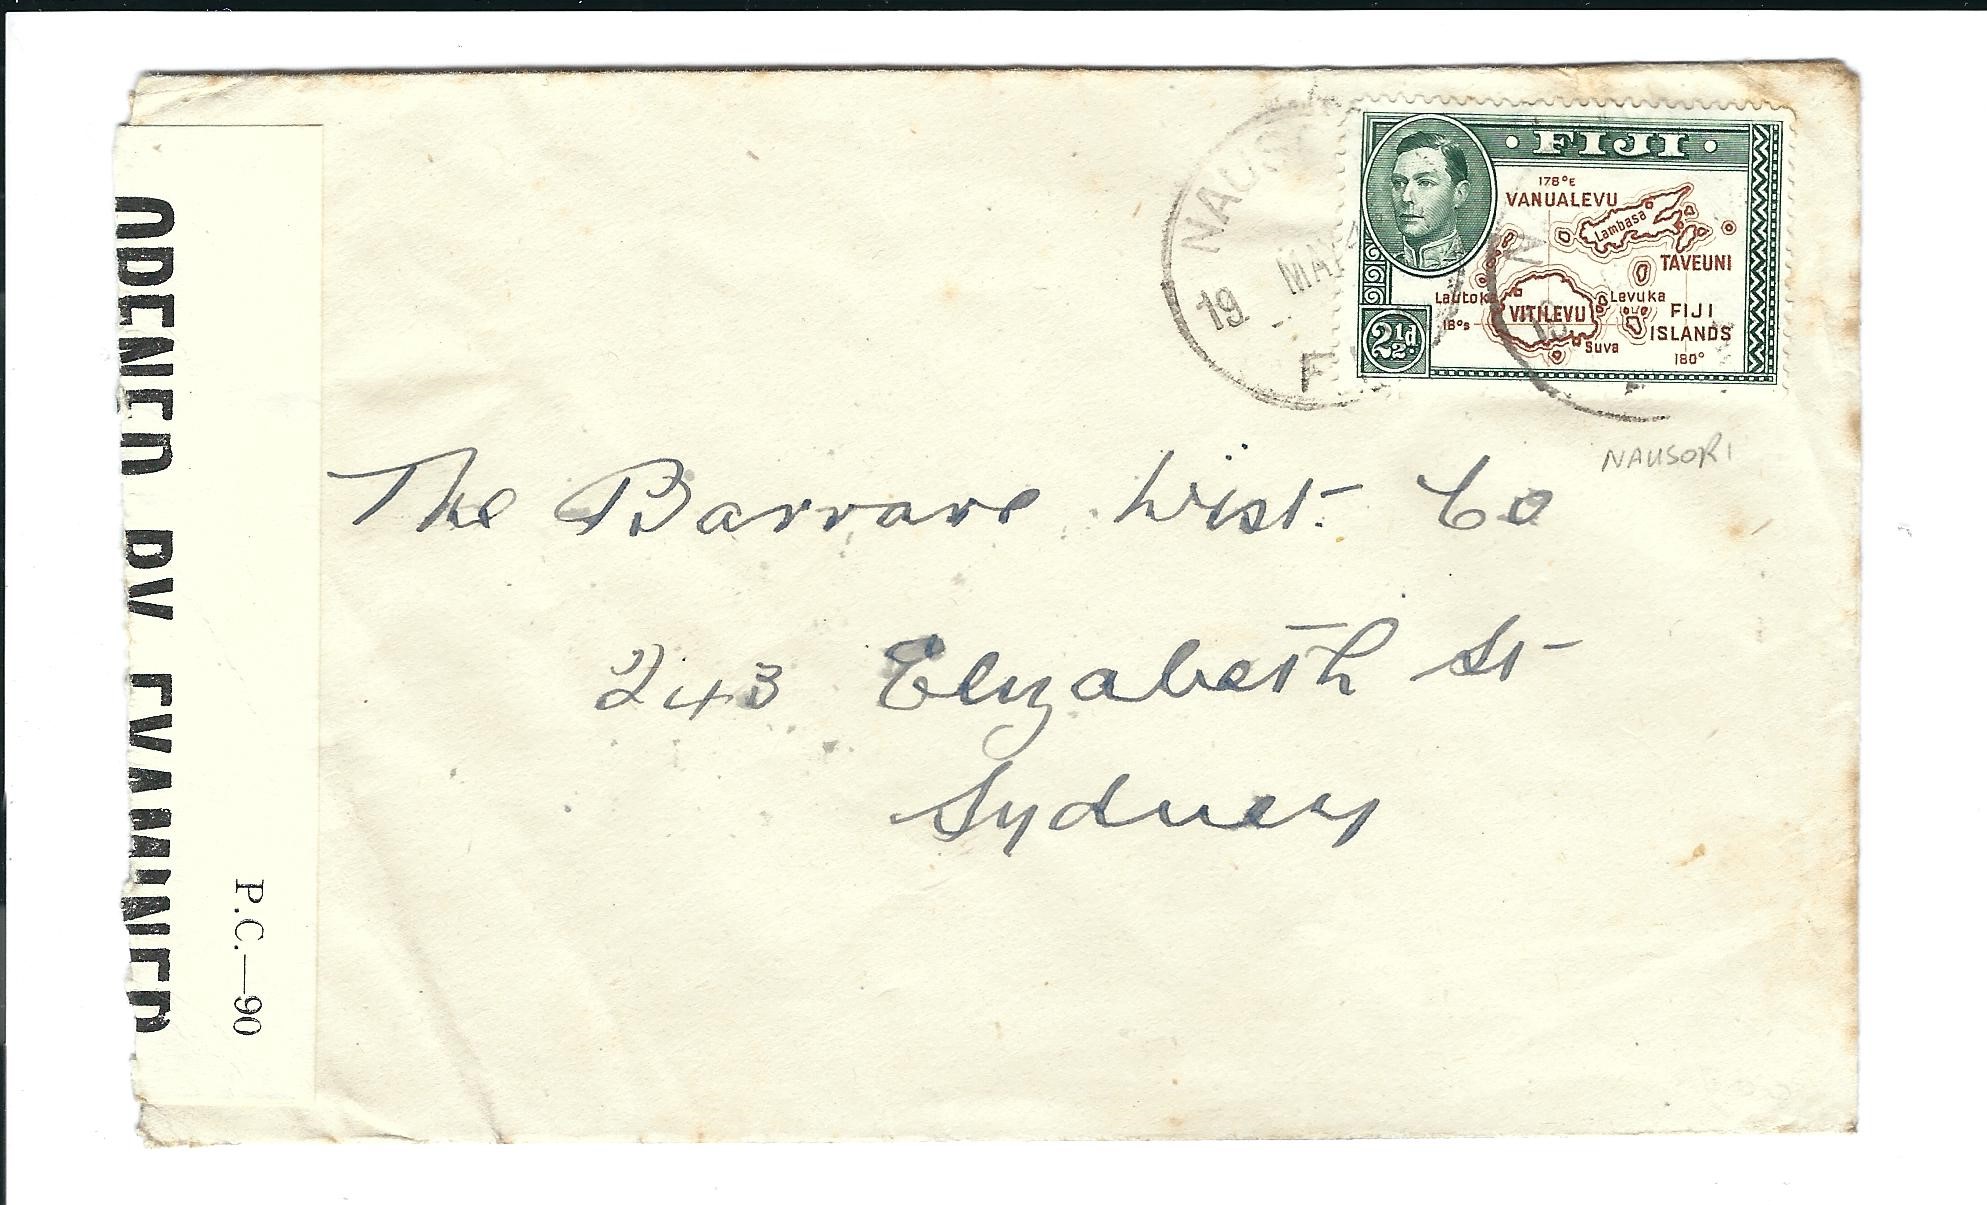 OPENED BY EXAMINER
P.C.—90
NAUSO
19 MAY
F
FIJI
178°E
VANUALEVU
Lambasa
TAVEUNI
Lautoka
VITILEVU
Levuka
FIJI
ISLANDS
18°S
Suva
180°
2½d
N
19
F
NAUSORI
The Barrare List. Co
243 Elizabeth St
Sydney